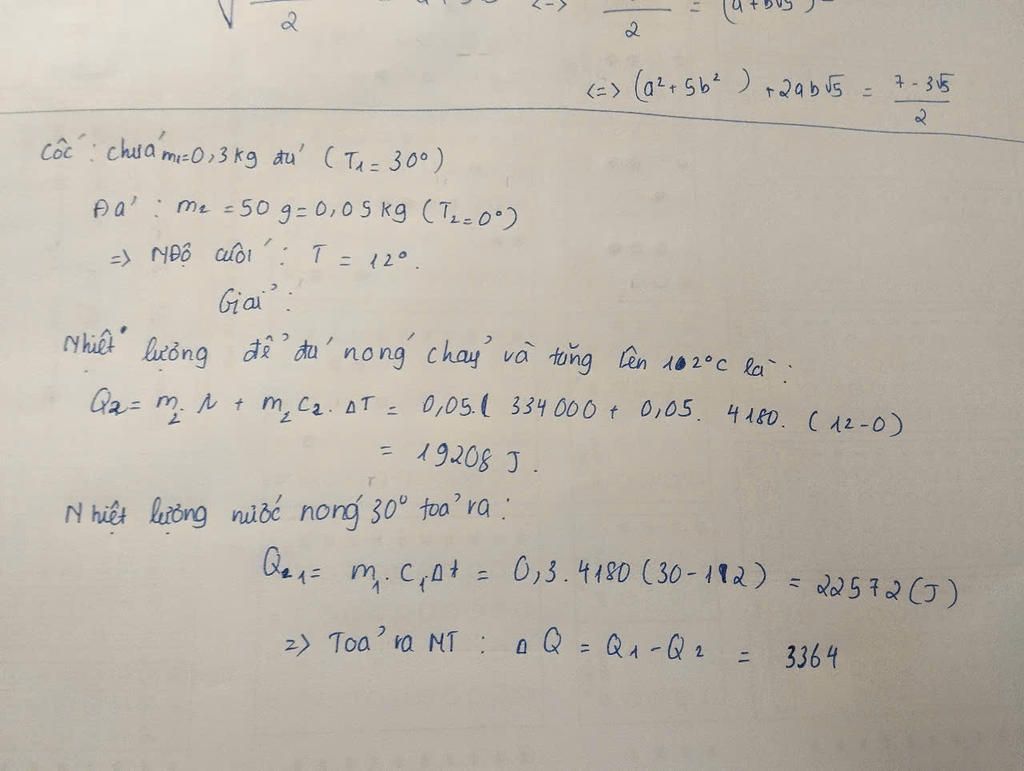 √ 2 <=> 2 = (a+b√5)²
<=> (a² + 5b²) + 2ab√5 = (7 - 3√5)/2
Cốc : chứa m₁=0,3 kg đá (T₁ = 30°)
Đá : m₂ = 50 g = 0,05 kg (T₂=0°)
=> NĐộ cuối : T = 12°.
Giải :
Nhiệt lượng để đá nóng chảy và tăng lên 12°C là :
Q₂ = m₂.λ + m₂C₂.ΔT = 0,05.( 334000 + 0,05. 4180. (12-0)
= 19208 J.
Nhiệt lượng nước nóng 30° toả ra :
Q₁ = m₁.C₁Δt = 0,3.4180(30-12) = 22572 (J)
=> Toả ra MT : ΔQ = Q₁ - Q₂ = 3364